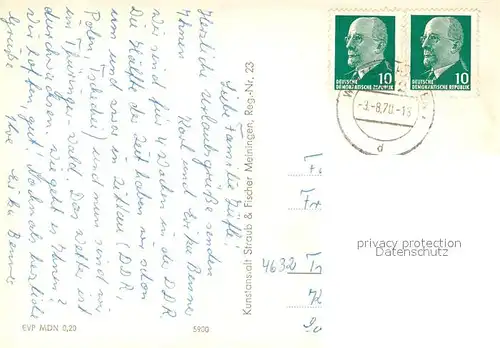 Liebe Familie
Herzliche Urlaubsgrüße senden
Ihnen Karl und Erika Benner
Wir sind für 4 Wochen in der DDR.
Die Hälfte der Zeit haben wir schon
um und zwar in Zittau (DDR,
Polen, Tschechei) und nun sind wir
im Thüringer Wald. Das Wetter ist
durchwachsen. Wie geht es Ihnen?
Wir hoffen, gut! Nochmals herzliche
Grüße Ihre Erika Benner
Kunstanstalt Straub & Fischer Meiningen, Reg.-Nr. 23
EVP MDN 0,20
5900
10
DEUTSCHE
DEMOKRATISCHE REPUBLIK
10
DEUTSCHE
DEMOKRATISCHE REPUBLIK
-3.-8.70.-18
d
4632
privacy protection
Datenschutz